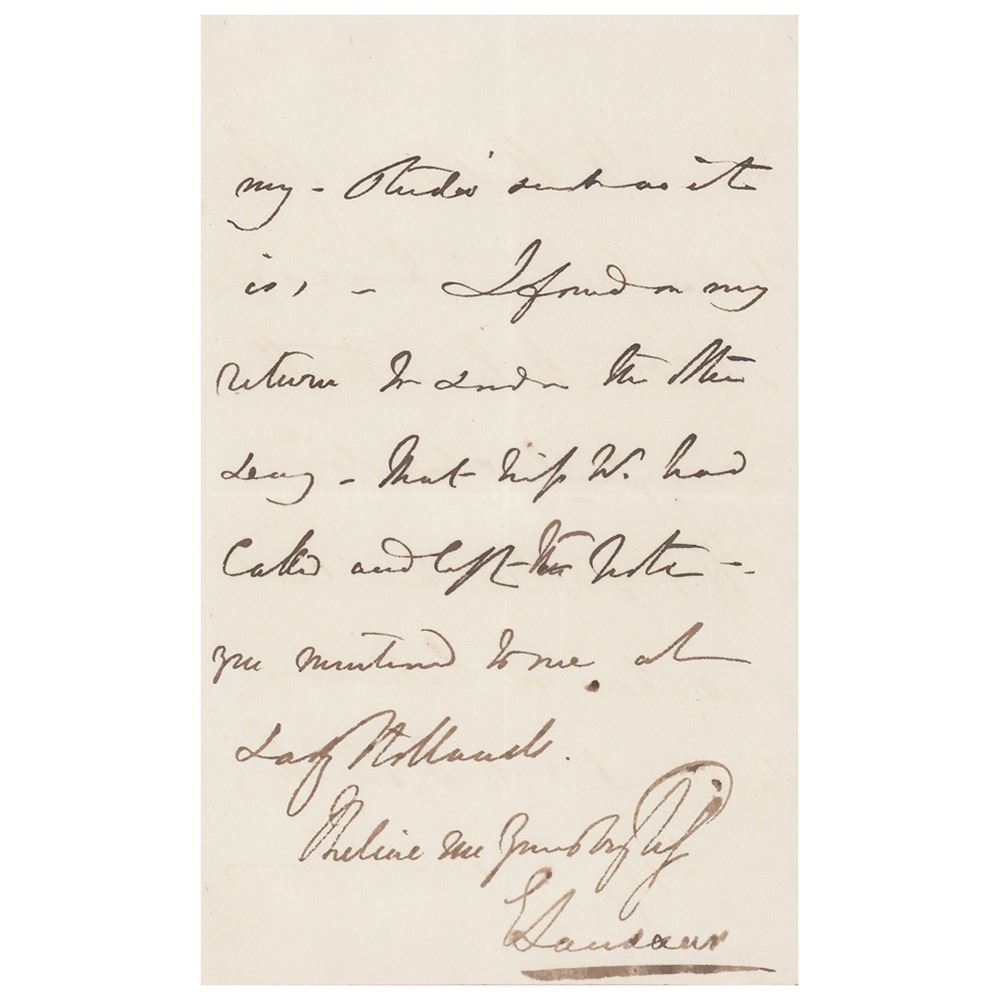 my - Studio such as it
is, - I found on my
return to London the other
day - that Miss W. had
Called and left the Note -
you mentioned to me at
Lady Hollands.
Believe me yours
E Landseer